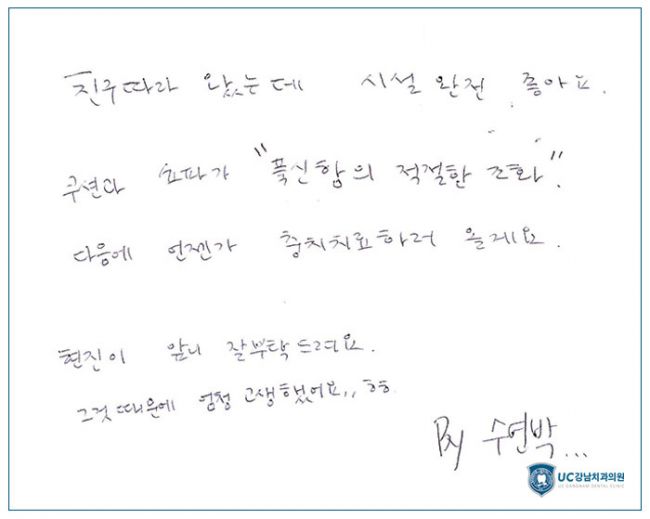 친구따라 왔는데 시설 완전 좋아요.
쿠션과 쇼파가 "푹신함의 적절한 조화".
다음에 언젠가 충치치료하러 올게요.
현진이 앞니 잘부탁드려요.
그것 때문에 엄청 고생했어요,, ㅎㅎ
By 수연박...
UC강남치과의원
UC GANGNAM DENTAL CLINIC